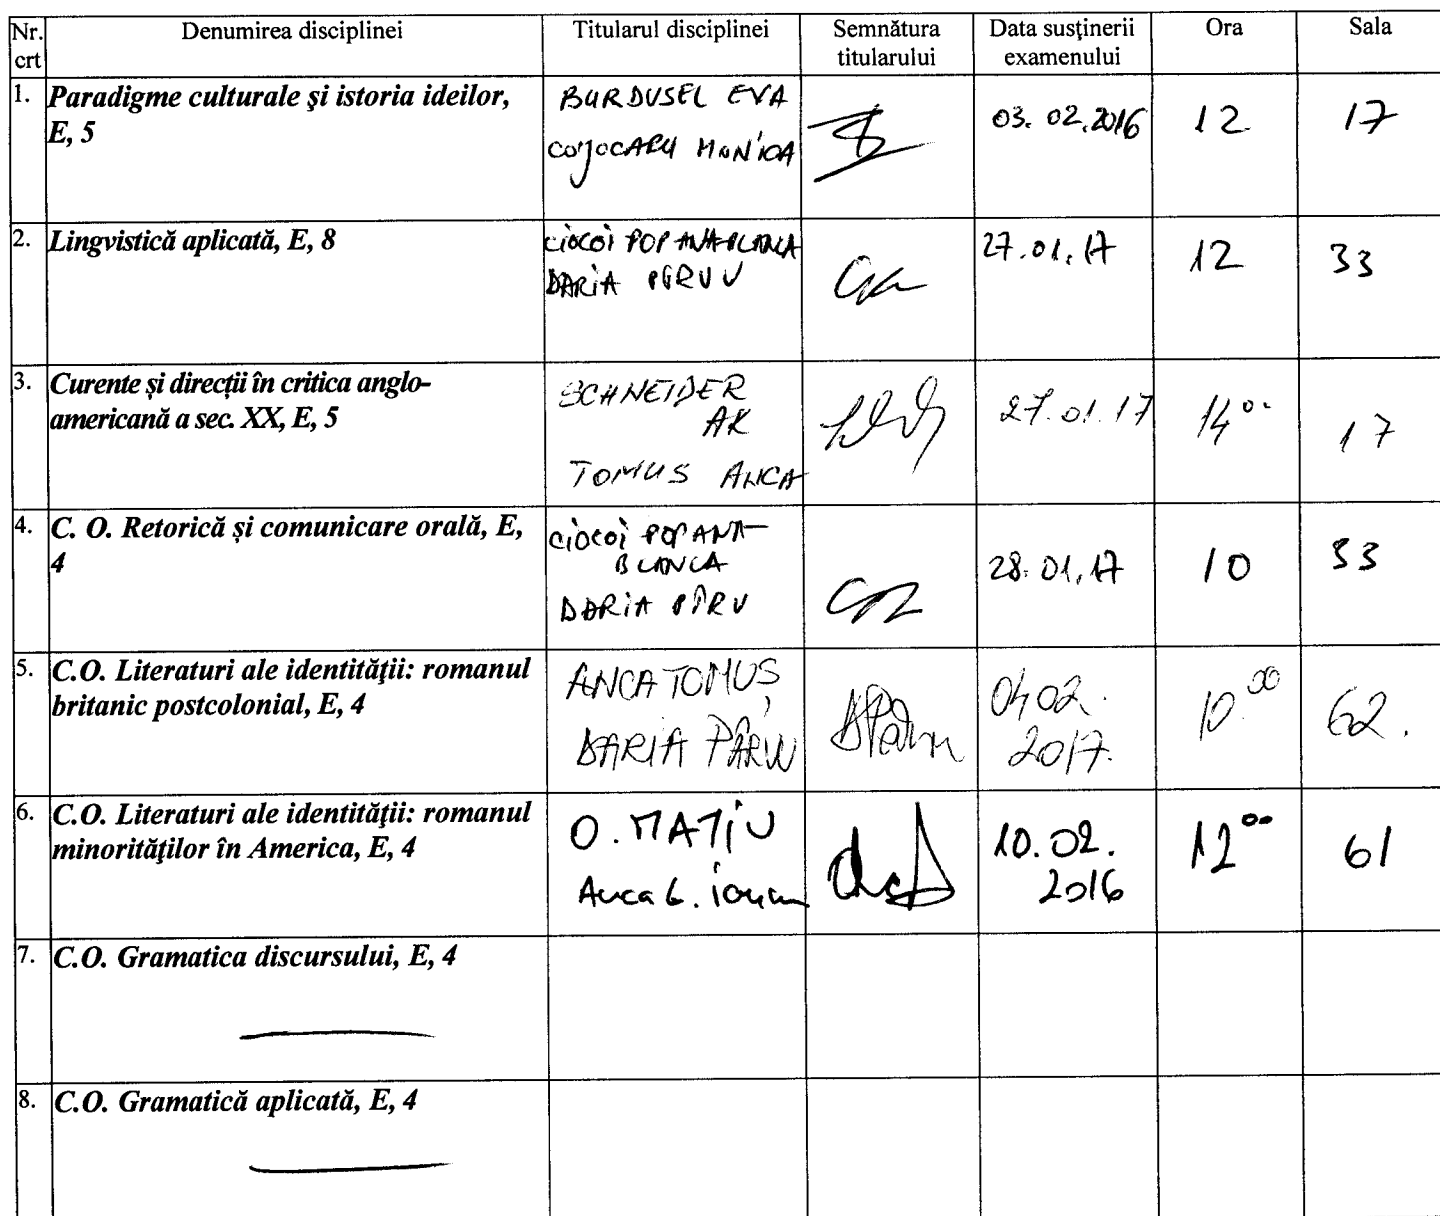 Nr. crt
Denumirea disciplinei
Titularul disciplinei
Semnătura titularului
Data susținerii examenului
Ora
Sala
1.
Paradigme culturale şi istoria ideilor,
E, 5
BURDUSEL EVA
COJOCARU MONICA
03. 02.2016
12
17
2.
Lingvistică aplicată, E, 8
CIOCOI POP ANA-BLANCA
DARIA PÂRVU
27.01.17
12
33
3.
Curente și direcții în critica anglo-
americană a sec. XX, E, 5
SCHNEIDER
AK
TOMUS ANCA
27.01.17
14 00
17
4.
C. O. Retorică și comunicare orală, E,
4
CIOCOI POP ANA-
BLANCA
DARIA PÎRV
28.01.17
10
33
5.
C.O. Literaturi ale identităţii: romanul
britanic postcolonial, E, 4
ANCA TOMUȘ
DARIA PÂRVU
04 02.
2017.
10.00
62.
6.
C.O. Literaturi ale identităţii: romanul
minorităţilor în America, E, 4
O. MATIU
Anca L.
10.02.
2016
12 00
61
7.
C.O. Gramatica discursului, E, 4
8.
C.O. Gramatică aplicată, E, 4